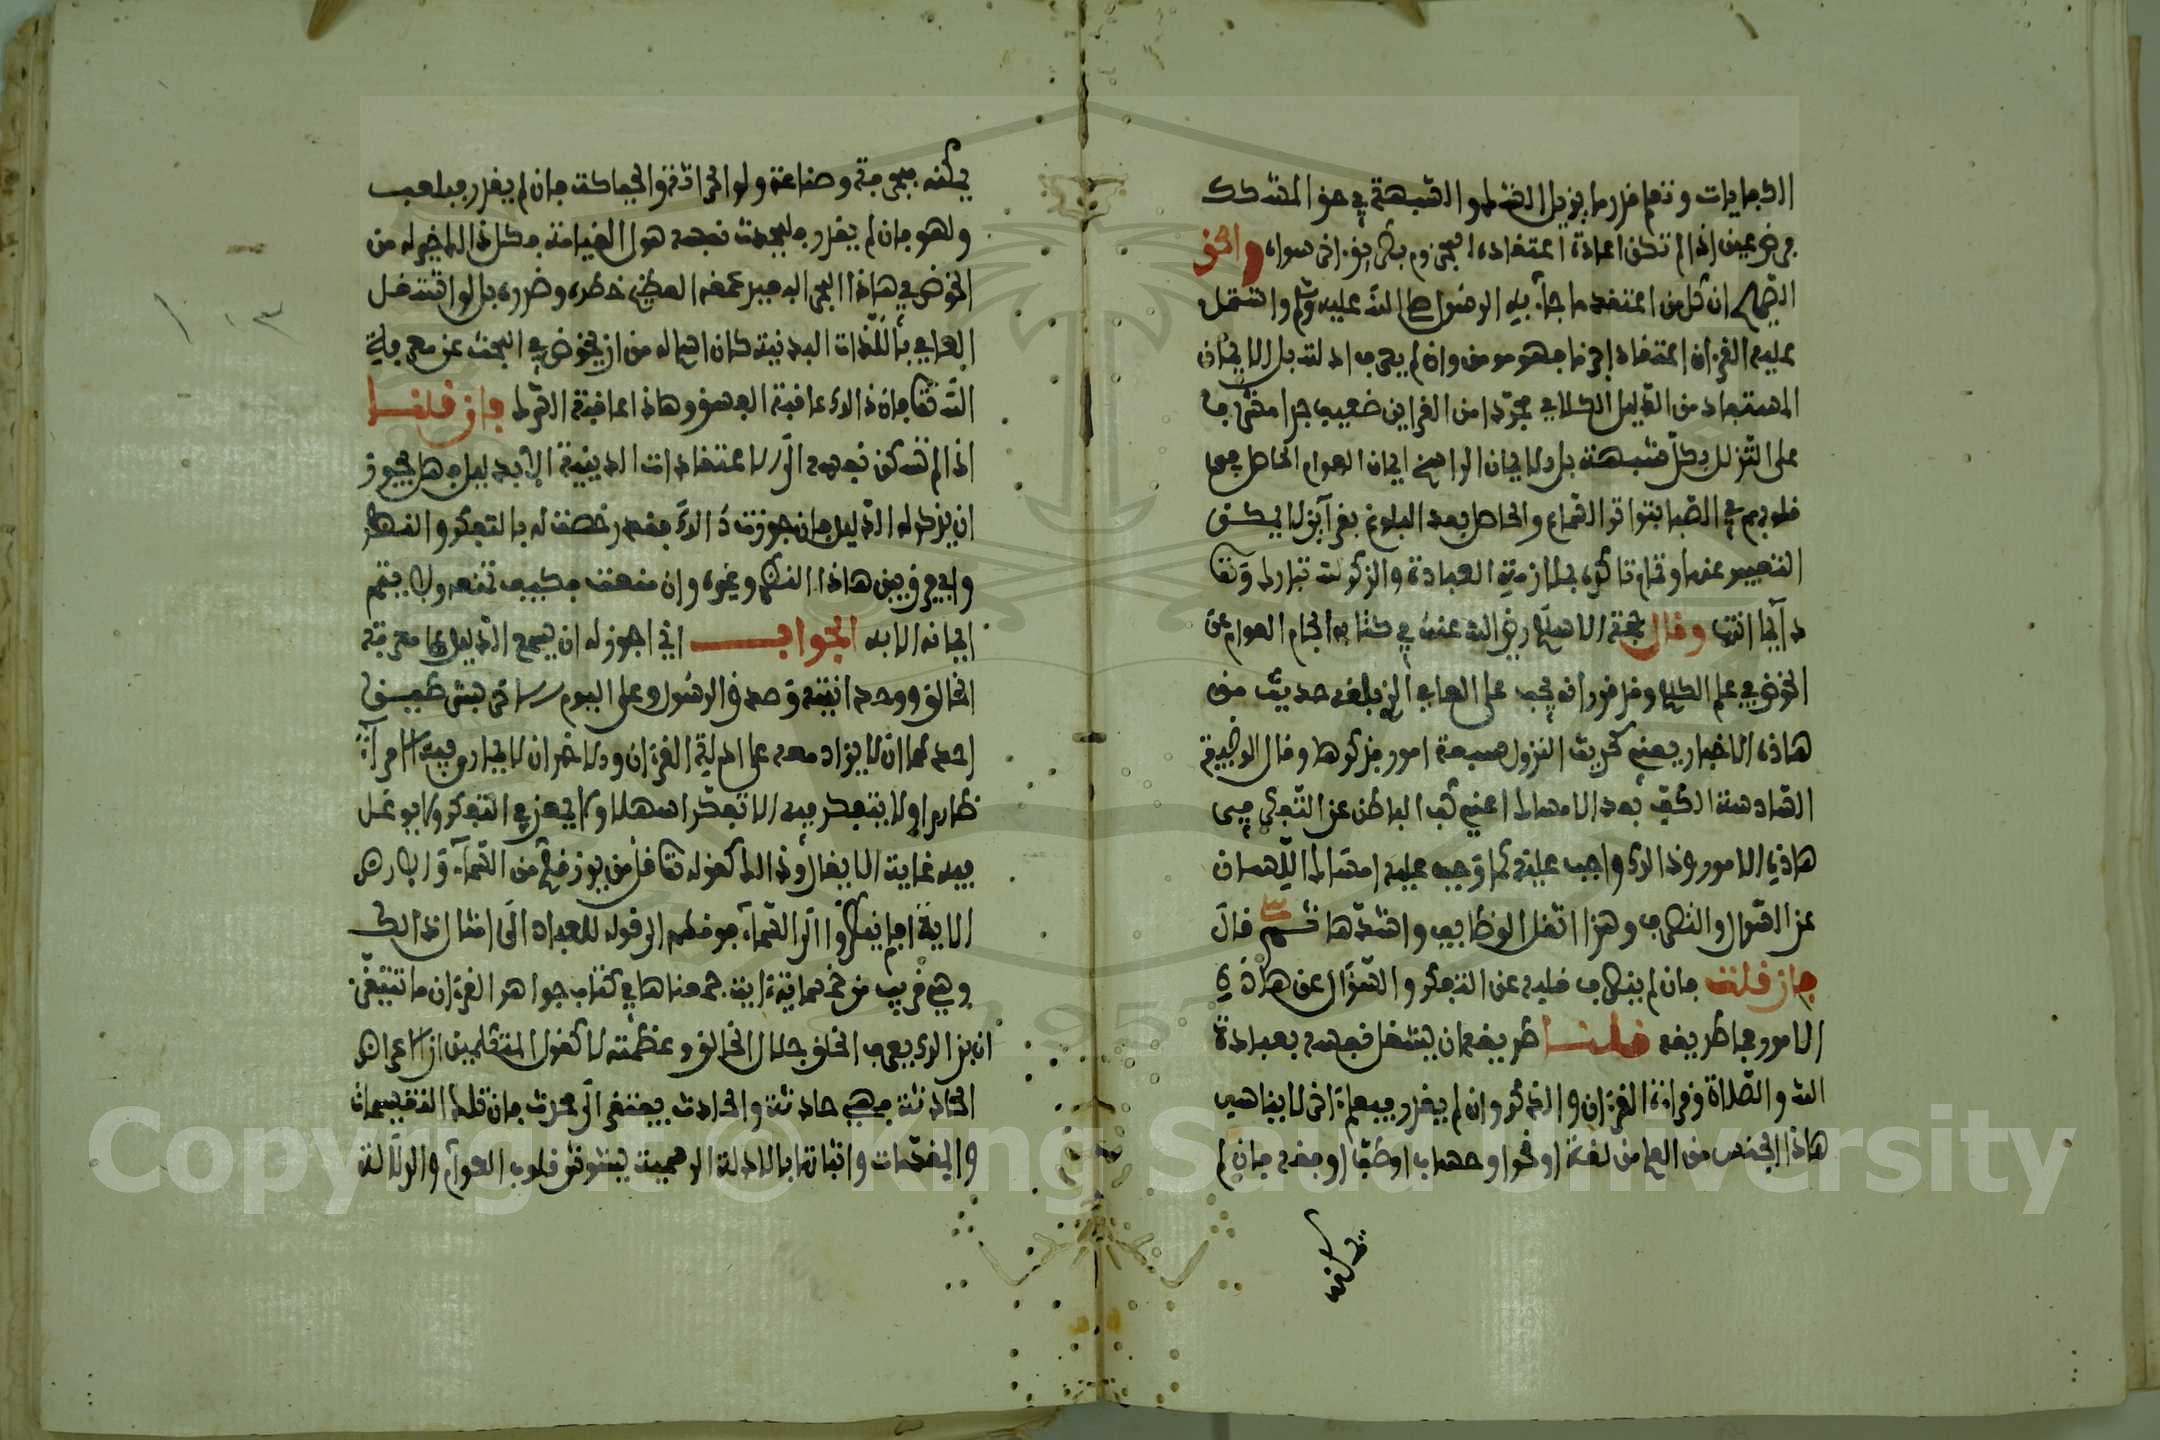 الكفايات وتعلم قدر ما يزيل الشك والشبهة في حق المتشكك
فرض عين إذا لم تكن اعادة اعتقاده المجزوم بطريق اخر سواه والحق
الصّريح ان كل من اعتقد ما جاء به الرسول صلى الله عليه وسلم واشتمل
عليه القرءان اعتقادا جزما فهو مومن وان لم يعرف ادلته بل الايمان
المستفاد من الدّليل الكلامي مجرّدا من القراين ضعيف جدا مشرف
على التزلزل بكل شبهة بل الايمان الراسخ ايمان العوام الحاصل في
قلوبهم في الصّبا بتواتر السّماع والحاصل بعد البلوغ بقرآين لا يمكن
التعبير عنها وتمام تاكده بملازمة العبادة والذكر لله تبارك وتعالى
دآئما انتهى وقال حجة الاسلام رضي الله عنه في كتابه الجام العوام عن
الخوض في علم الكلام وقد قرر انه يجب على العامي الذي بلغه حديث من
هاذه الاخبار يعني كحديث النزول سبعة امور فذكرها وقال الوظيفة
السّادسة الكف بعد الامساك اعني كف الباطن عن التفكر في
هاذه الامور وذالك واجب عليه كما وجب عليه امساك اللّسان
عن السّوال والتصرف وهذا اثقل الوظايف واشدّها ثم قال
فان قلت فان لم ينصرف قلبه عن التفكر والسّؤال عن هاذه
الامور فما طريقه قلنا طريقه ان يشغل نفسه بعبادة
الله والصّلاة وقراءة القرءان والذكر وان لم يقدر فبعلم اخر لا يناسب
هاذا الجنس من العلم من لغة او نحو او حساب او طبّ او فقه فان لم
يمكنه
يمكنه فبحرفة وصناعة ولو الحراثة والحياكة فان لم يقدر فبلعب
ولهو فان لم يقدر فليحدث نفسه هول القيامة فكل ذالك خير له من
الخوض في هاذا البحر البعيد عمقه العظيم خطره وضرره بل لو اشتغل
العامي باللّذات البدنية كان اسلم له من ان يخوض في البحث عن معرفة
الله تعالى فان ذالك عاقبة الفسق وهاذا عاقبة الشرك فان قلت
اذا لم تسكن نفسه الى الاعتقادات الدينية الا بدليل فهل يجوز
ان يذكر له الدّليل فان جوزت ذالك فقد رخصت له بالتفكر والنظر
واي فرق بين هاذا النظر وغيره وان منعت فكيف تمنعه ولا يتم
ايمانه الا به الجواب اني اجوز له ان يسمع الدّليل على معرفة
الخالق ووحدانيته وصدق الرسول وعلى اليوم الاخر بشرطين
احدهما ان لا يزاد معه على ادلة القرءان والاخر ان لا يمارى فيه الا مرآء
ظاهرا ولا يتفكر فيه الا تفكرا سهلا ولا يمعن في التفكر ولا يوغل
فيه غاية الايغال وذالك كقوله تعالى قل من يرزقكم من السّمآء والارض
الاية افلم ينظروا الى السّمآء فوقهم الى قوله للعباد الى امثال ذالك
وهي قريب من خمسماية ءاية جمعناها في كتاب جواهر القرءان ما تنبغي
ان بذالك يعرف الخلق جلال الخالق وعظمته لا كقول المتكلمين ان الاعراض
الحادثة فهي حادثة والحادث يفتقر الى محدث فان تلك التقسيمات
والمقدّمات واثباتها بالادلة الرسمية يشوش قلوب العوآم والدّلالة